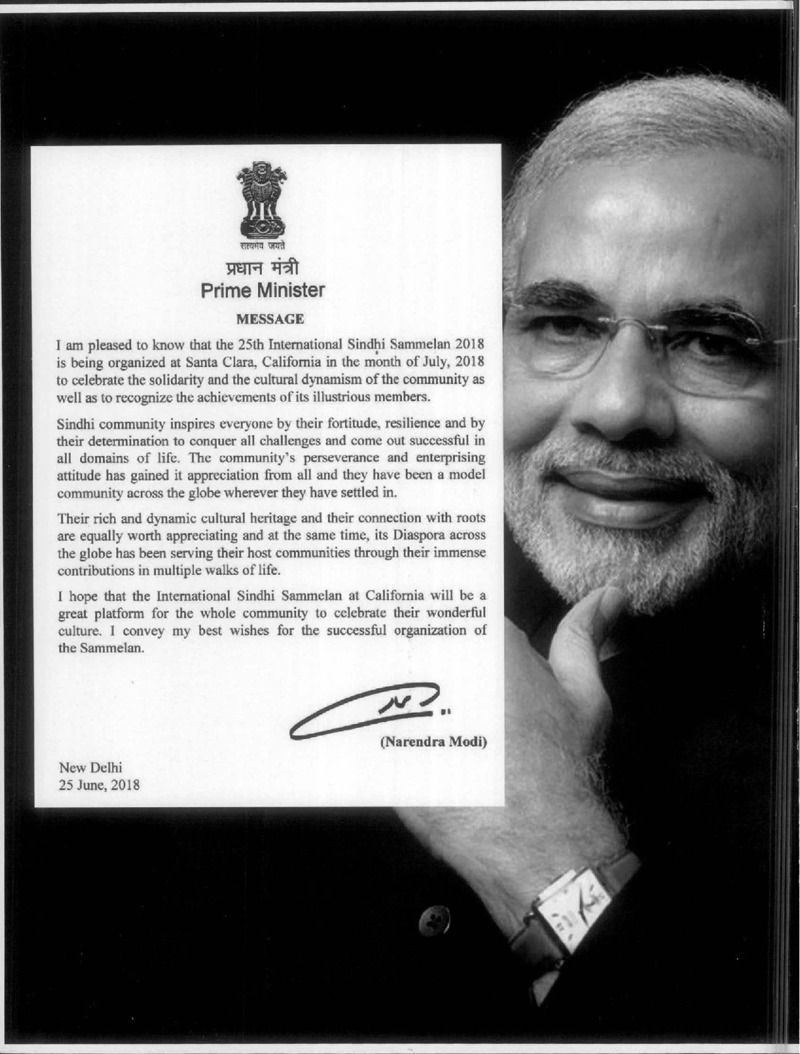 सत्यमेव जयते
प्रधान मंत्री
Prime Minister
MESSAGE
I am pleased to know that the 25th International Sindhi Sammelan 2018
is being organized at Santa Clara, California in the month of July, 2018
to celebrate the solidarity and the cultural dynamism of the community as
well as to recognize the achievements of its illustrious members.
Sindhi community inspires everyone by their fortitude, resilience and by
their determination to conquer all challenges and come out successful in
all domains of life. The community's perseverance and enterprising
attitude has gained it appreciation from all and they have been a model
community across the globe wherever they have settled in.
Their rich and dynamic cultural heritage and their connection with roots
are equally worth appreciating and at the same time, its Diaspora across
the globe has been serving their host communities through their immense
contributions in multiple walks of life.
I hope that the International Sindhi Sammelan at California will be a
great platform for the whole community to celebrate their wonderful
culture. I convey my best wishes for the successful organization of
the Sammelan.
(Narendra Modi)
New Delhi
25 June, 2018